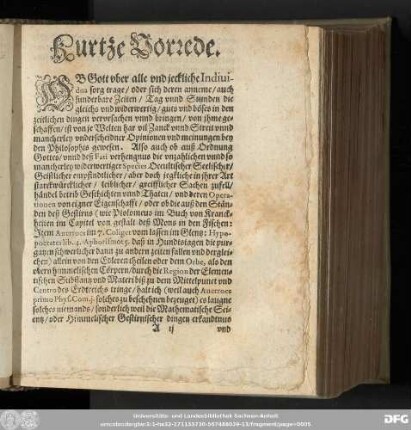 Kurtze Vorrede.
OB Gott vber alle vnd jeckliche Indiui-
dua sorg trage / oder sich deren anneme / auch
sunderbare Zeiten / Tag vnnd Stunden die
gleichs vnd widerwertig / guts vnd böses in den
zeitlichen dingen vervrsachen vnnd bringen / von jhme ge-
schaffen / ist von je Welten her vil Zanck vnnd Streit vnnd
mancherley vnderscheidner Opinionen vnd meinungen bey
den Philosophis gewesen. Also auch ob auß Ordnung
Gottes / vnnd deß Fati verhengnus die vnzahlichen vnnd so
mancherley widerwertiger Species Occultischer Seelischer /
Geistlicher empfindtlicher / aber doch jegklich in jhrer Art
starckwürcklicher / leiblicher / greifflicher Sachen zufell /
händel betrib Geschichten vnnd Thaten / vnd deren Opera-
tionen von eigner Eigenschafft / oder ob die auß den Stän-
den deß Gestirns (wie Ptolomeus im Buch von Kranck-
heiten im Capitel von gestalt deß Mons in den Fischen:
Item Auerroes im 7. Coliget vom lassen im Glentz: Hypo-
pocrates lib. 4. Aphorismo 5. daß in Hundstagen die pur-
gatzen schwerlicher dann zu andern zeiten fallen vnd dergli-
chen) allein von den Coleret theilen oder dem Orbe, als den
obern hymmelischen Cörpern / durch die Region der Elemen-
tischen Substantz vnd Materi biß zu dem Mittelpunct vnd
Centro des Erdtreichs tringe / haltich (weil auch Auerroes
primo Phys. Com. j. solches zu beschehnen bezeuget) es laugne
solches niemands / sonderlich weil die Mathematische Sci-
entz / oder Himmelischer Gestirnischer dingen erkandtnus
A ij vnd
Universitäts- und Landesbibliothek Sachsen-Anhalt
DFG